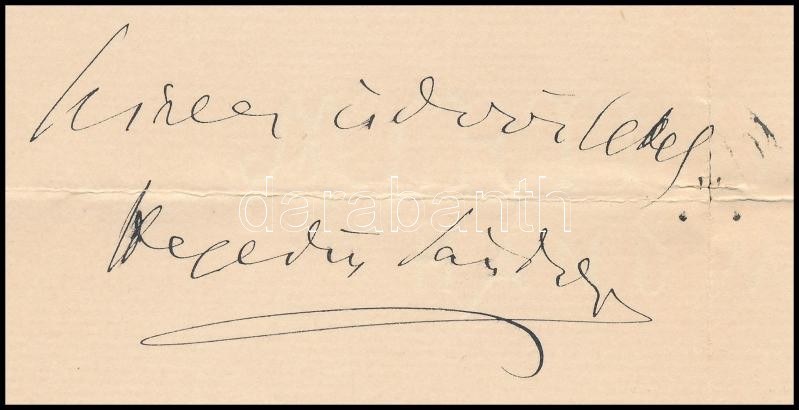 szives üdvözlettel
darabanth
Hegedüs Sándor